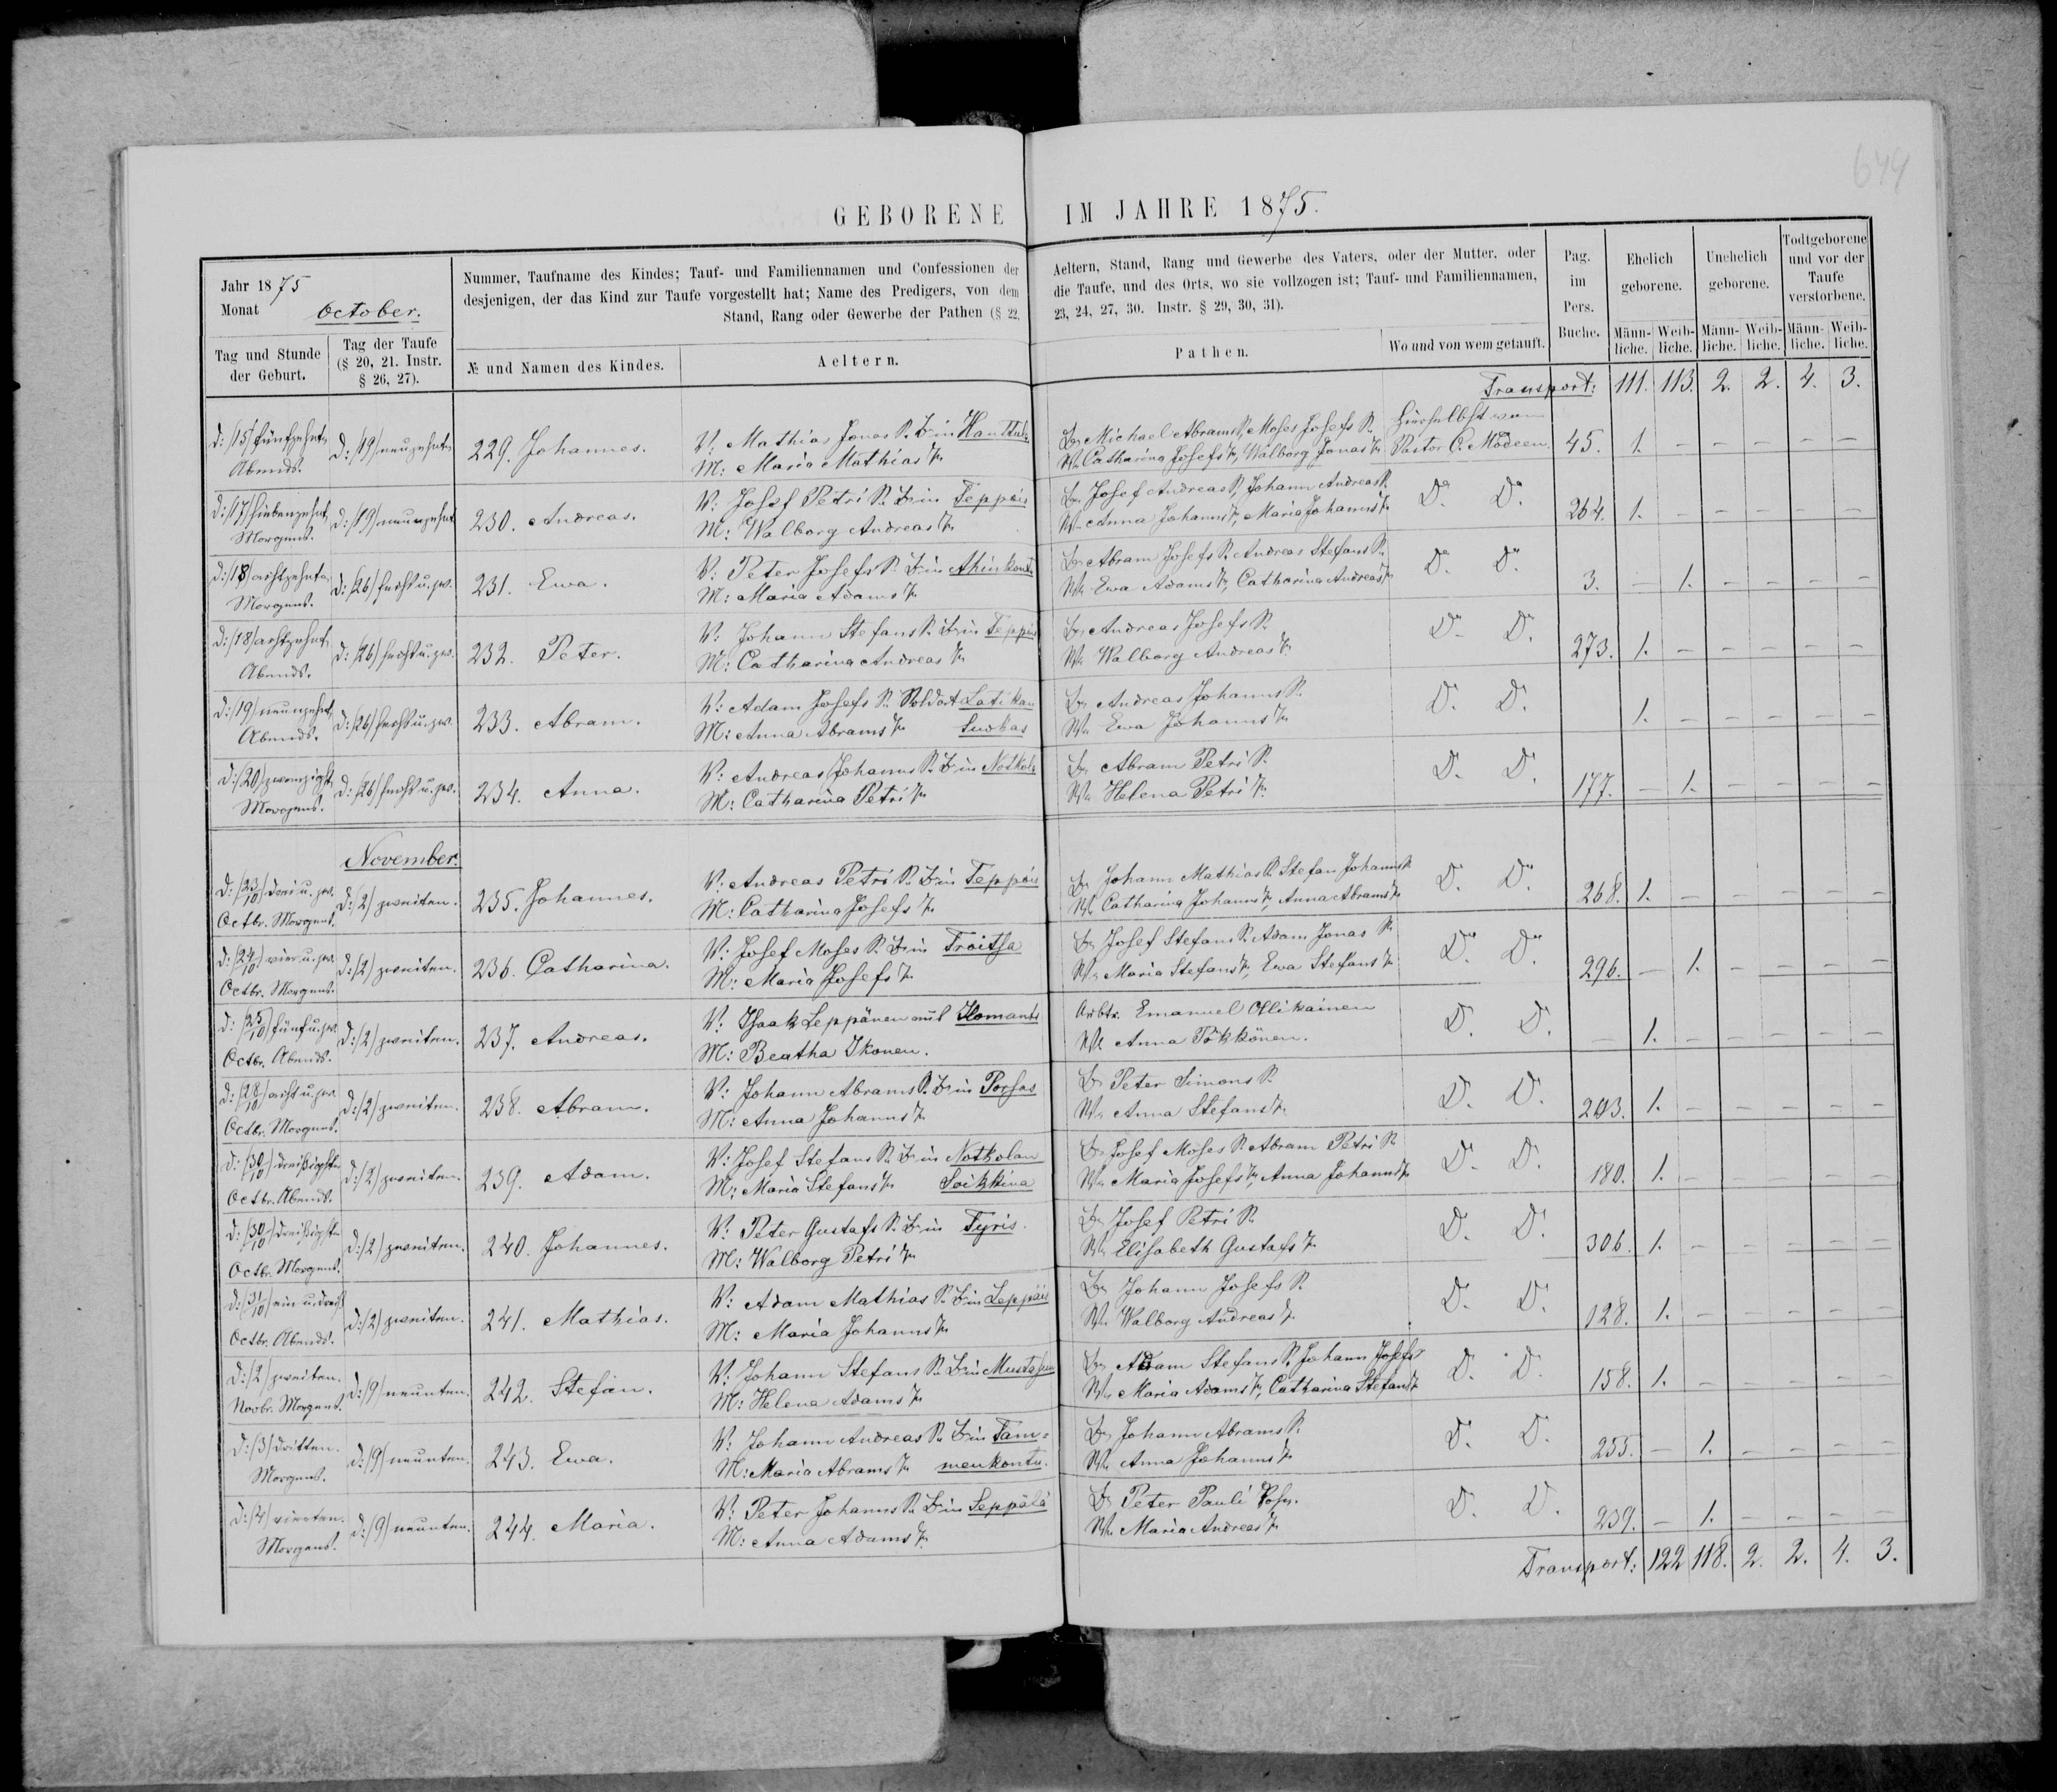 644
GEBORENE IM JAHRE 1875.
Jahr 1875
Monat October.
Nummer, Taufname des Kindes; Tauf- und Familiennamen und Confessionen der
desjenigen, der das Kind zur Taufe vorgestellt hat; Name des Predigers, von dem
Stand, Rang oder Gewerbe der Pathen (§ 22,
Aeltern, Stand, Rang und Gewerbe des Vaters, oder der Mutter, oder
die Taufe, und des Orts, wo sie vollzogen ist; Tauf- und Familiennamen,
23, 24, 27, 30. Instr. § 29, 30, 31).
Pag. im Pers. Buche.
Ehelich geborene.
Unehelich geborene.
Todtgeborene und vor der Taufe verstorbene.
Tag und Stunde der Geburt.
Tag der Taufe (§ 20, 21. Instr. § 26, 27).
№ und Namen des Kindes.
Aeltern.
Pathen.
Wo und von wem getauft.
Männ-liche. Weib-liche. Männ-liche. Weib-liche. Männ-liche. Weib-liche.
Transport: 111. 113. 2. 2. 4. 3.
d: /15/ fünfzehnt. Abends. d: /19/ neunzehnt. 229. Johannes.
V: Mathias Jonas S. B. in
M: Maria Mathias T.
Michael Abrams S., Moses Josefs S.
Catharina Josefs T., Walborg Jonas T.
Hierselbst von
Pastor C. Modeen. 45. 1. – – – – –
d: /17/ siebenzehnt. Morgens. d: /19/ neunzehnt. 230. Andreas.
V: Josef Petri S. B. in Teppois
M: Walborg Andreas T.
Josef Andreas S., Johann Andreas S.
Anna Johanns T., Maria Johanns T.
Do Do 264. 1. – – – – –
d: /18/ achtzehnt. Morgens. d: /26/ sechs u. zw. 231. Ewa.
V: Peter Josefs S. B. in
M: Maria Adams T.
Abram Josefs S. Andreas Stefans S.
Ewa Adams T., Catharina Andreas T.
Do Do 3. – 1. – – – –
d: /18/ achtzehnt. Abends. d: /26/ sechs u. zw. 232. Peter.
V: Johann Stefans S. B. in Teppois
M: Catharina Andreas T.
Andreas Josefs S.
Walborg Andreas T.
Do D. 273. 1. – – – – –
d: /19/ neunzehnt. Abends. d: /26/ sechs u. zw. 233. Abram.
V: Adam Josefs S. Soldat Latikan
M: Anna Abrams T.
Andreas Johanns S.
Ewa Johanns T.
D. D. 1. – – – – –
d: /20/ zwanzigst. Morgens. d: /26/ sechs u. zw. 234. Anna.
V: Andreas Johanns S. B. in
M: Catharina Petri T.
Abram Petri S.
Helena Petri T.
D. D. 177. – 1. – – – –
November.
d: /23/10/ drei u. zw. Octbr. Morgens. d: /2/ zweiten. 235. Johannes.
V: Andreas Petri S. B. in Teppois
M: Catharina Josefs T.
Johann Mathias S. Stefan Johanns S.
Catharina Johanns T., Anna Abrams T.
D. D. 268. 1. – – – – –
d: /24/10/ vier u. zw. Octbr. Morgens. d: /2/ zweiten. 236. Catharina.
V: Josef Moses S. B. in Troitsa
M: Maria Josefs T.
Josef Stefans S. Adam Jonas S.
Maria Stefans T., Ewa Stefans T.
Do Do 296. – 1. – – – –
d: /25/10/ fünf u. zw. Octbr. Abends. d: /2/ zweiten. 237. Andreas.
V: Isaak Leppänen aus Ilomants
M: Beatha Ikonen.
Arbtr. Emanuel Ollikainen
Anna Tökkönen.
D. D. – 1. – – – – –
d: /28/10/ acht u. zw. Octbr. Morgens. d: /2/ zweiten. 238. Abram.
V: Johann Abrams S. B. in
M: Anna Johanns T.
Peter Simons S.
Anna Stefans T.
D. D. 203. 1. – – – – –
d: /30/10/ dreißigsten Octbr. Abends. d: /2/ zweiten. 239. Adam.
V: Josef Stefans S. B. in Notkolan
M: Maria Stefans T. Soikkina
Josef Moses S. Abram Petri S.
Maria Josefs T., Anna Johanns T.
D. D. 180. 1. – – – – –
d: /30/10/ dreißigsten Octbr. Morgens. d: /2/ zweiten. 240. Johannes.
V: Peter Gustafs S. B. in Tyris.
M: Walborg Petri T.
Josef Petri S.
Elisabeth Gustafs T.
D. D. 306. 1. – – – – –
d: /31/10/ ein u. dreiß. Octbr. Abends. d: /2/ zweiten. 241. Mathias.
V: Adam Mathias S. B. in Leppois
M: Maria Johanns T.
Johann Josefs S.
Walborg Andreas T.
D. D. 128. 1. – – – – –
d: /2/ zweiten. Novbr. Morgens. d: /9/ neunten. 242. Stefan.
V: Johann Stefans S. B. in
M: Helena Adams T.
Adam Stefans S. Johann Josefs
Maria Adams T., Catharina Stefans T.
D. D. 158. 1. – – – – –
d: /3/ dritten. Morgens. d: /9/ neunten. 243. Ewa.
V: Johann Andreas S. B. in Tam=
M: Maria Abrams T. menkontu.
Johann Abrams S.
Anna Johanns T.
D. D. 255. – 1. – – – –
d: /4/ vierten. Morgens. d: /9/ neunten. 244. Maria.
V: Peter Johanns S. B. in Seppälä
M: Anna Adams T.
Peter Pauli
Maria Andreas T.
D. D. 239. – 1. – – – –
Transport: 122 118. 2. 2. 4. 3.